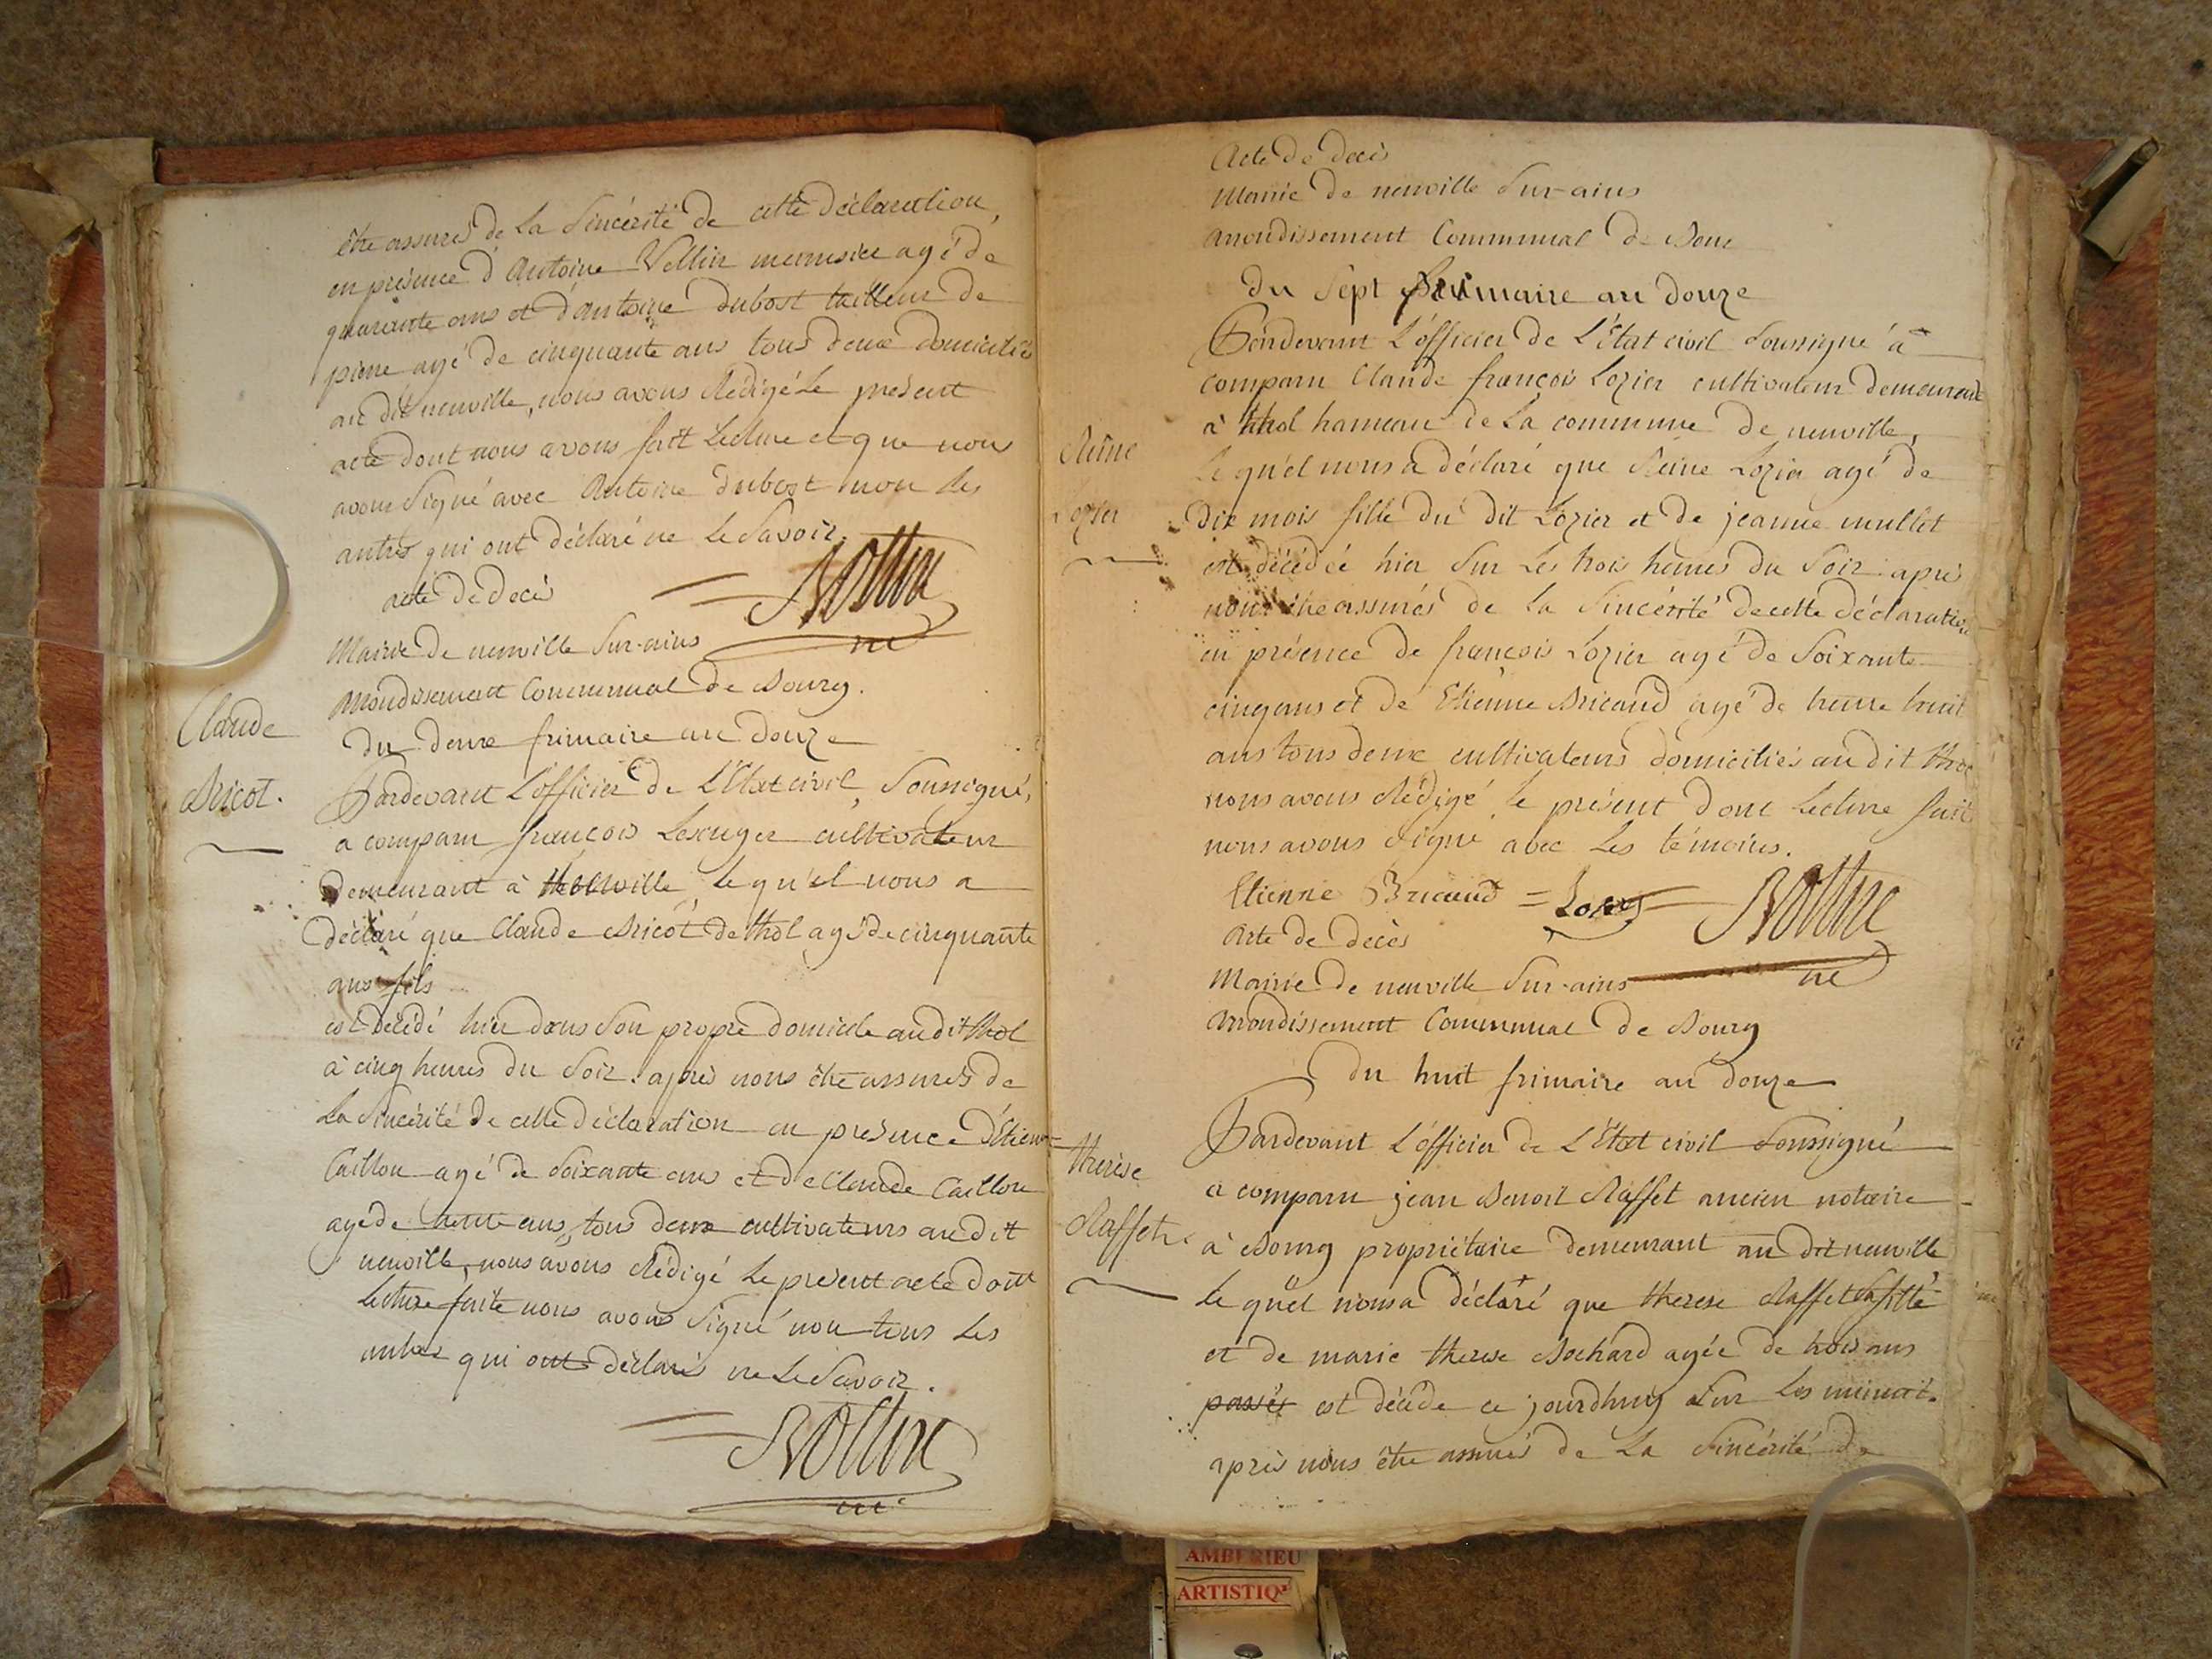 être assurés de la Sincérité de cette déclaration,
en présence d'Antoine Vellin menusier agé de
quarante ans et d'antoine dubost tailleur de
pierre agé de cinquante ans tous deux domiciliés
au dit neuville, nous avons Rédigé le present
acte dont nous avons fait Lecture et que nous
avons Signé avec Antoine dubost non les
autres qui ont déclaré ne le Savoir.
acte de decès
Mairie de neuville Sur-ains
arrondissement Communal de Bourg.
Claude
Bricot.
du deux frimaire an douze
Pardevant l'officier de l'Etat civil, Soussigné,
a comparu françois cultivateur
demeurant à neuville, le qu'el nous a
déclaré que Claude Bricot de thol agé de cinquante
ans fils
est décédé hier dans Son propre domicile au dit thol
à cinq heures du Soir. après nous être assurés de
La Sincérité de cette déclaration en presence d'Etienne
Caillou agé de Soixante ans et de Claude Caillou
agé de trente ans, tous deux cultivateurs au dit
neuville, nous avons Rédigé le present acte dont
lecture faite nous avons Signé non tous les
autres qui ont déclarés ne le Savoir.
Acte de decès
Mairie de neuville Sur-ains
arrondissement Communal de Bour
du Sept frimaire an douze
Pardevant L'officier de L'état civil Soussigné à
comparu Claude françois Lozier cultivateur demeurant
à thol hameau de La commune de neuville,
Reine
Lozier
le qu'el nous a déclaré que Reine Lozier agé de
dix mois fille du dit Lozier et de jeanne mullet
est décédée hier Sur les trois heures du Soir. après
nous être assurés de la Sincérité de cette déclaration
en présence de françois Lozier agé de Soixante
cinq ans et de Etienne Bricaud agé de trente huit
ans tous deux cultivateurs domiciliés au dit thol
nous avons Rédigé le présent dont lecture faite
nous avons Signé avec les témoins.
Etienne Bricaud =
Acte de decès
Mairie de neuville Sur-ains
arrondissement Communal de Bourg
du huit frimaire an douze
therèse
Raffet
Pardevant L'officier de L'état civil Soussigné
a comparu jean Benoit Raffet ancien notaire
à Bourg propriétaire demeurant au dit neuville
le quel nous a déclaré que therese Raffet Sa fille
et de marie therese Bochard agée de trois ans
passés est décédé ce jourdhuy Sur les minuit.
après nous être assurés de La Sincérité de
AMBERIEU
ARTISTIQ